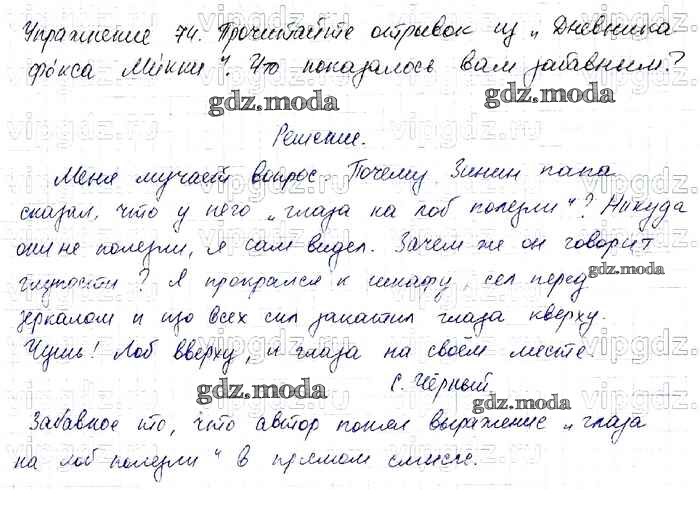 Упражнение 74. Прочитайте отрывок из „Дневника
фо́кса Ми́кки“. Что показалось вам забавным?
gdz.moda gdz.moda
Решение.
Меня мучает вопрос. Почему Зинин папа
сказал, что у него „глаза на лоб полезли“? Никуда
они не полезли, я сам видел. Зачем же он говорит
глупости? Я прокрался к шкафу, сел перед
gdz.moda
зеркалом и изо всех сил закатил глаза кверху.
Чушь! Лоб вверху, и глаза на своём месте.
С. Чёрный
gdz.moda gdz.moda
Забавное то, что автор понял выражение „глаза
на лоб полезли“ в прямом смысле.